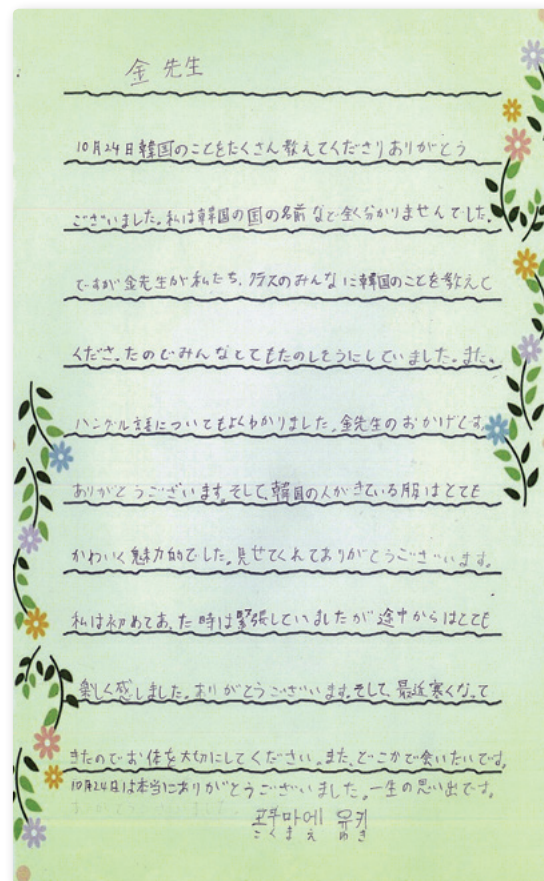 金先生
10月24日韓国のことをたくさん教えてくださりありがとう
ございました。私は韓国の国の名前など全く分かりませんでした。
ですが金先生が私たち、クラスのみんなに韓国のことを教えて
くださったのでみんなとてもたのしそうにしていました。また、
ハングル語についてもよくわかりました。金先生のおかげです。
ありがとうございます。そして、韓国の人がきている服はとても
かわいく魅力的でした。見せてくれてありがとうございます。
私は初めてあった時は緊張していましたが途中からはとても
楽しく感しました。ありがとうございます。そして、最近寒くなって
きたのでお体を大切にしてください。また、どこかで会いたいです。
10月24日は本当にありがとうございました。一生の思い出です。
마에 유키
こくまえ ゆき